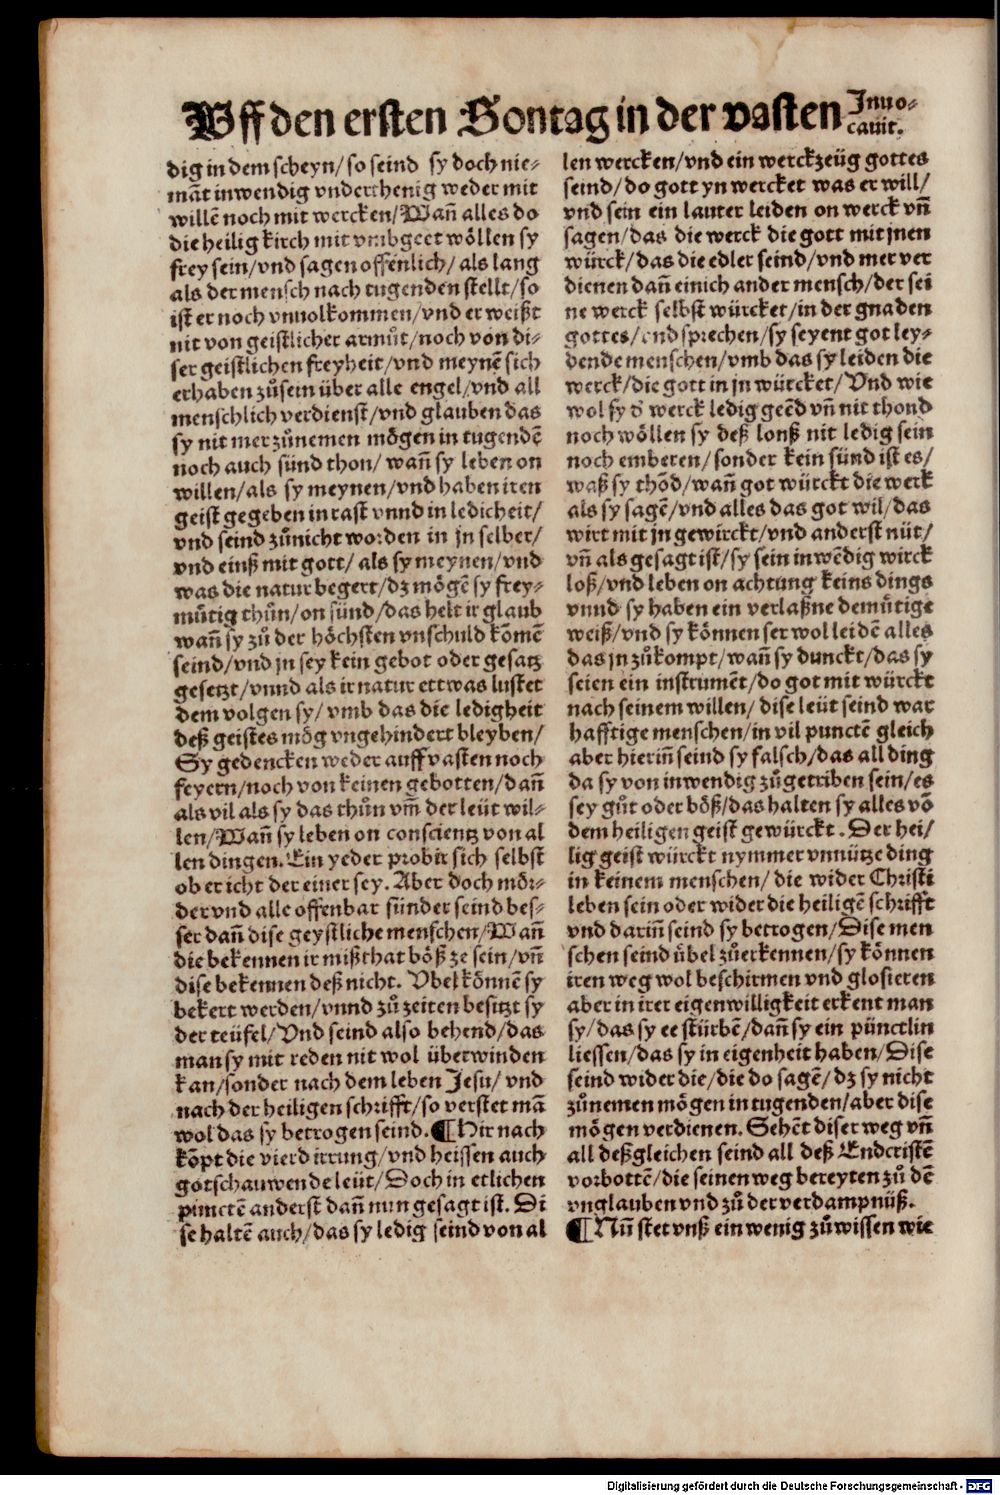 Vff den ersten Sontag in der vasten Inuo-
cauit.
dig in dem scheyn/so seind sy doch nie-
mãt inwendig vnderthenig weder mit
willẽ noch mit wercken/Wañ alles do
die heilig kirch mit vmbgeet wöllen sy
frey sein/vnd sagen offenlich/als lang
als der mensch nach tugenden stellt/so
ist er noch vnuolkommen/vnd er weißt
nit von geistlicher armůt/noch von di-
ser geistlichen freyheit/vnd meynẽ sich
erhaben zůsein über alle engel/vnd all
menschlich verdienst/vnd glauben das
sy nit mer zůnemen mögen in tugendẽ
noch auch sünd thon/wañ sy leben on
willen/als sy meynen/vnd haben iren
geist gegeben in rast vnnd in ledicheit/
vnd seind zůnicht worden in jn selber/
vnd einß mit gott/als sy meynen/vnd
was die natur begert/dz mögẽ sy frey-
můtig thůn/on sünd/das helt ir glaub
wañ sy zů der höchsten vnschuld kõmẽ
seind/vnd jn sey kein gebot oder gesatz
gesetzt/vnnd als ir natur ettwas lustet
dem volgen sy/vmb das die ledigheit
deß geistes mög vngehindert bleyben/
Sy gedencken weder auff vasten noch
feyern/noch von keinen gebotten/dañ
als vil als sy das thůn vm̃ der leüt wil-
len/Wañ sy leben on conscientz von al
len dingen. Ein yeder probir sich selbst
ob er icht der einer sey. Aber doch mör-
der vnd alle offenbar sünder seind bes-
ser dañ dise geystliche menschen/Wañ
die bekennen ir mißthat böß ze sein/vñ
dise bekennen deß nicht. Vbel könnẽ sy
bekert werden/vnnd zů zeiten besitzt sy
der teüfel/Vnd seind also behend/das
man sy mit reden nit wol überwinden
kan/sonder nach dem leben Jesu/vnd
nach der heiligen schrifft/so verstet mã
wol das sy betrogen seind. ¶Hir nach
kõpt die vierd irrung/vnd heissen auch
gotschauwende leüt/Doch in etlichen
puncten anderst dañ nun gesagt ist. Di
se haltẽ auch/das sy ledig seind von al
len wercken/vnd ein werckzeüg gottes
seind/do gott yn wercket was er will/
vnd sein ein lauter leiden on werck vñ
sagen/das die werck die gott mit jnen
würck/das die edler seind/vnd mer ver
dienen dañ einich ander mensch/der sei
ne werck selbst würcket/in der gnaden
gottes/vnd sprechen/sy seyent got ley-
dende menschen/vmb das sy leiden die
werck/die gott in jn würcket/Vnd wie
wol sy d̕ werck ledig geẽd vñ nit thond
noch wöllen sy deß lonß nit ledig sein
noch emberen/sonder kein sünd ist es/
waß sy thõd/wañ got würckt die werk
als sy sagẽ/vnd alles das got wil/das
wirt mit jn gewirckt/vnd anderst nüt/
vñ als gesagt ist/sy sein inwẽdig wirck
loß/vnd leben on achtung keins dings
vnnd sy haben ein verlaßne demůtige
weiß/vnd sy können ser wol leidẽ alles
das jn zůkompt/wañ sy dunckt/das sy
seien ein instrumẽt/do got mit würckt
nach seinem willen/dise leüt seind war
hafftige menschen/in vil punctẽ gleich
aber hierin̄ seind sy falsch/das all ding
da sy von inwendig zůgetriben sein/es
sey gůt oder böß/das halten sy alles võ
dem heiligen geist gewürckt. Der hei/
lig geist würckt nymmer vnnütze ding
in keinem menschen/die wider Christi
leben sein oder wider die heiligẽ schrifft
vnd darin̄ seind sy betrogen/Dise men
schen seind übel zůerkennen/sy können
iren weg wol beschirmen vnd glosieren
aber in irer eigenwilligkeit erkent man
sy/das sy ee stürbẽ/dañ sy ein pünctlin
liessen/das sy in eigenheit haben/Dise
seind wider die/die do sagẽ/dz sy nicht
zůnemen mögen in tugenden/aber dise
mögen verdienen. Sehẽt diser weg vñ
all deßgleichen seind all deß Endcristẽ
vorbottẽ/die seinen weg bereyten zů dẽ
vnglauben vnd zů der verdampnüß.
¶Nun̄ stet vnß ein wenig zůwissen wie
Digitalisierung gefördert durch die Deutsche Forschungsgemeinschaft - DFG